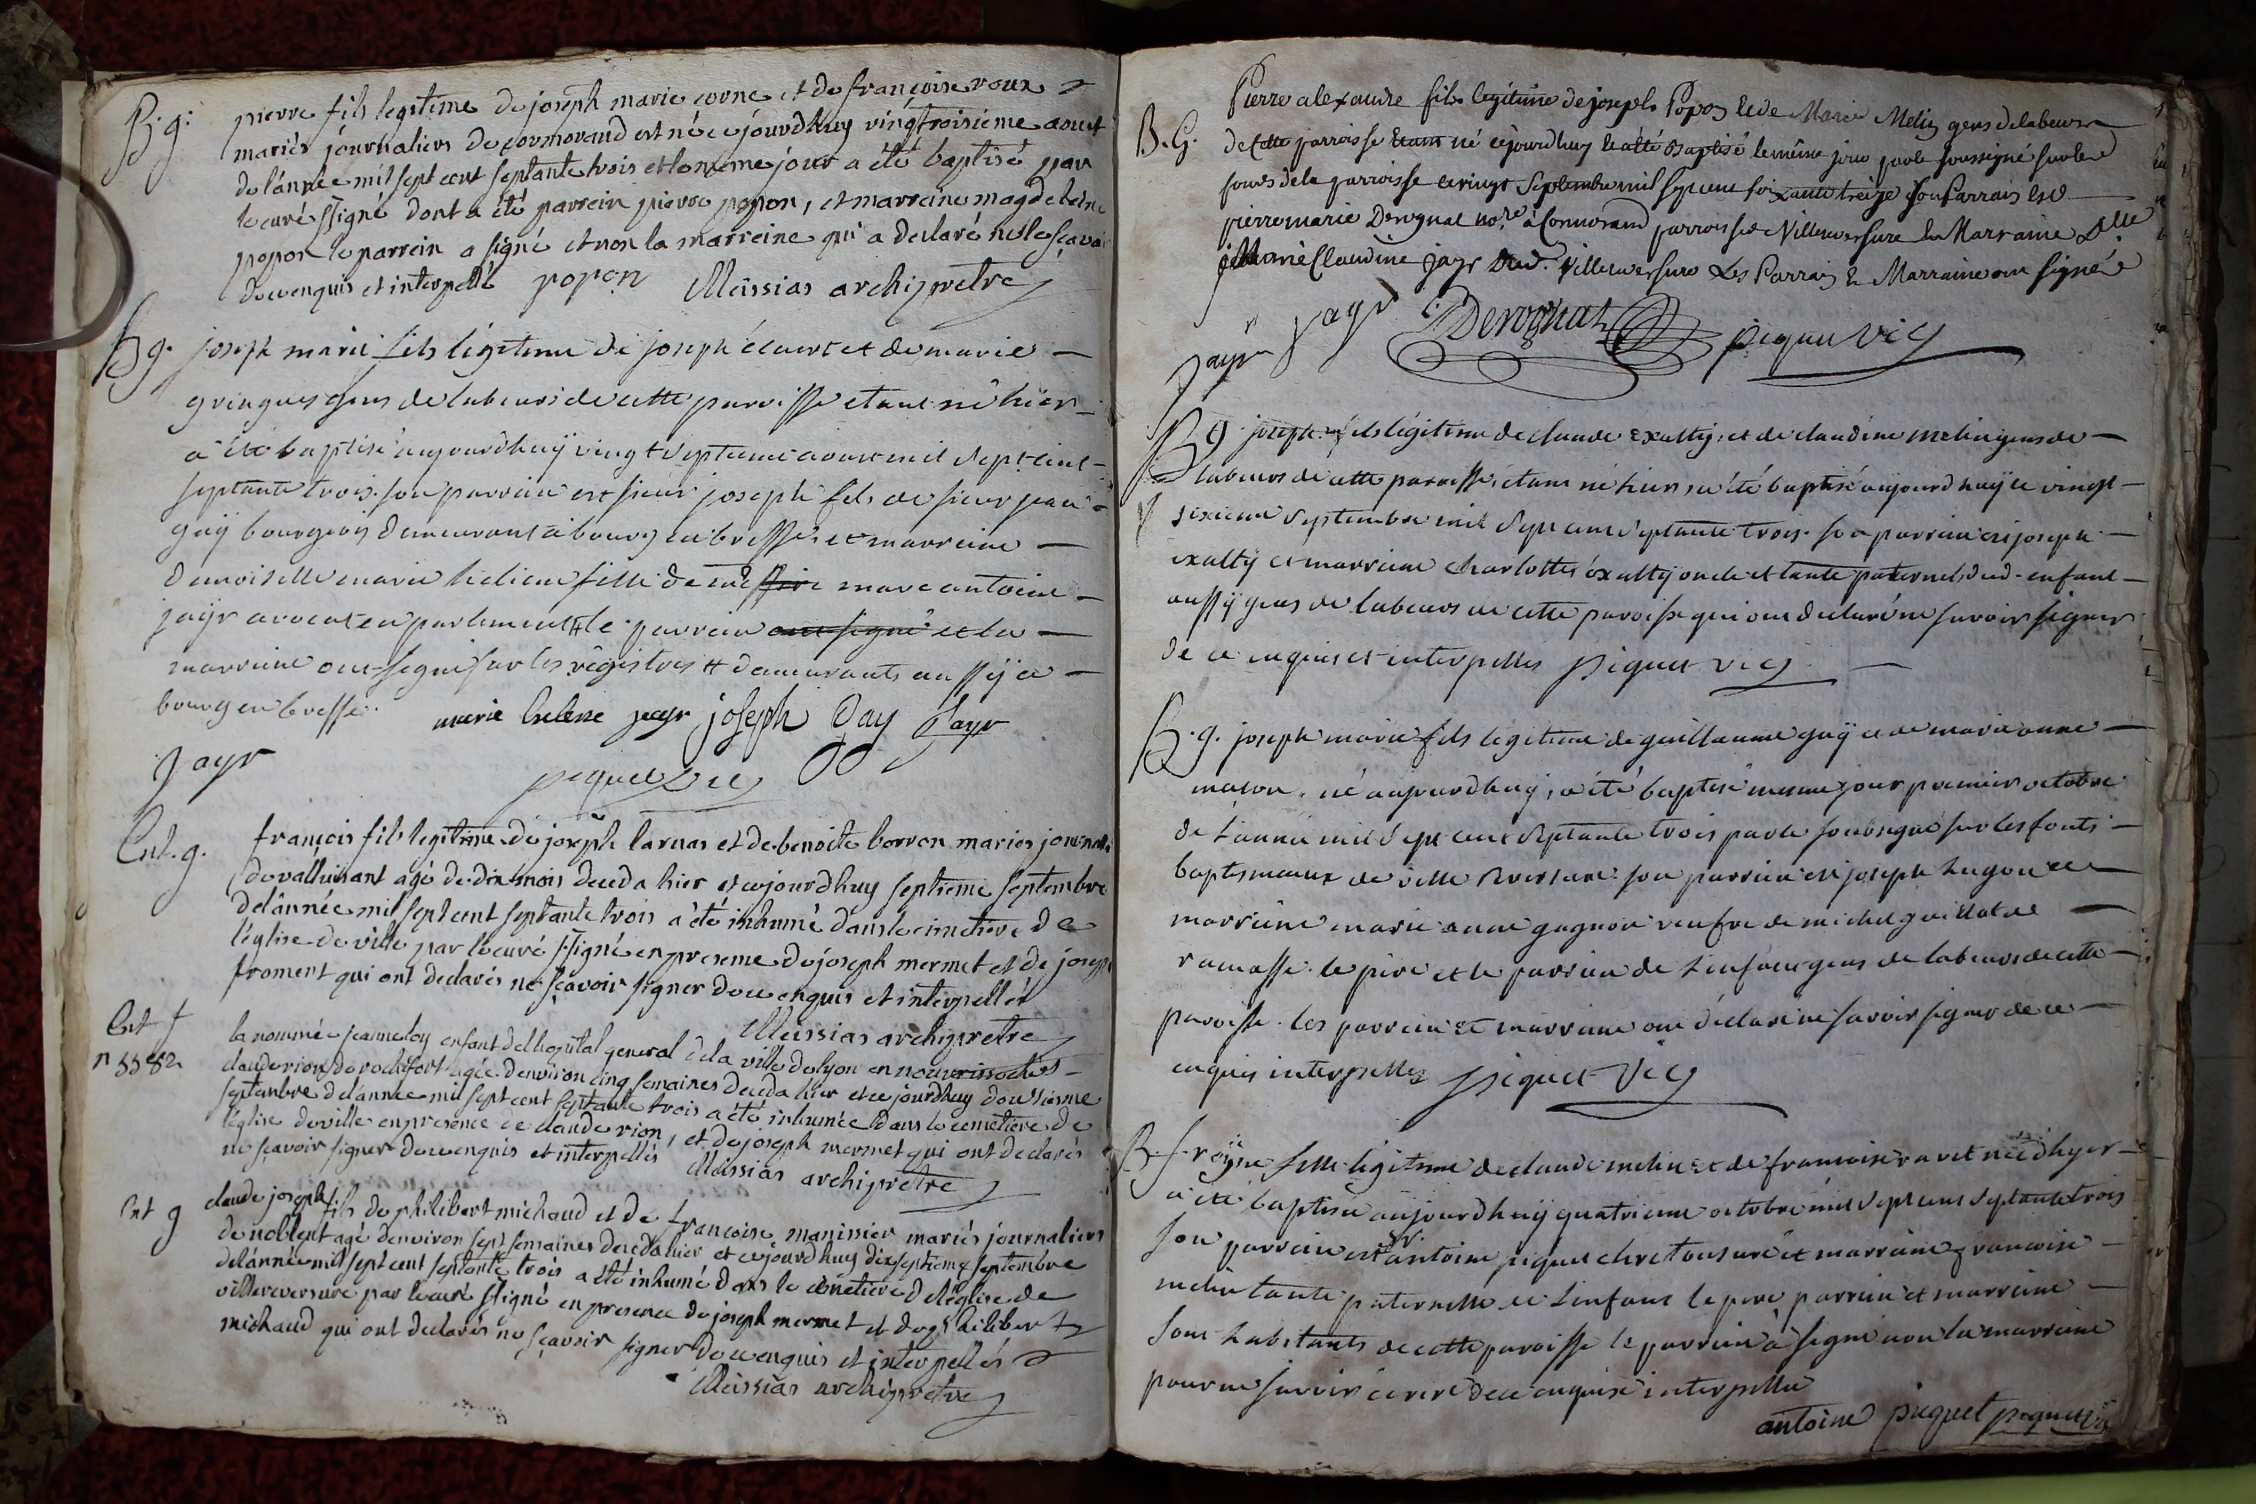 B. g. pierre fils legitime de joseph marie corne et de françoise roux
mariés journaliers de cormorand est né cejourdhuy vingtroisieme aoust
de l'année mil sept cent septante trois et le meme jour a été baptisé par
le curé ssigné dont a été parrein pierre popon, et marreine magdeleine
popon le parrein a signé et non la marreine qui a declaré ne le sçavoir
de ce enquis et interpellé popon Meissias archiprêtre
B g. joseph marie fils légitime de joseph et de marie
gens de labeurs de cette paroisse etant né hier
a été baptisé aujourdhuÿ vingt septieme aoust mil sept cent
septante trois. son parrein est sieur joseph fils de sieur jean
gaÿ bourgeois demeurant à bourg en bresse et marreine
demoiselle marie helene fille de marc antoine
jaÿr avocat en parlement # le parrein ont signé et la
marreine ont signé sur les régistres # demeurants aussÿ a
bourg en bresse.
marie helene jayr joseph Gay Jayr
Jayr
piquet vic
Ent. g. françois fils legitime de joseph larnas et de benoite borron mariés journal
de valluisant agé de dix mois deceda hier et cejourdhuy septieme septembre
de l'année mil sept cent septante trois a été inhumé dans le cimetiere de
l'église de ville par le curé ssigné en presence de joseph mermet et de joseph
froment qui ont declarés ne sçavoir signer de ce enquis et interpellés
Meissias archiprêtre
Ent f la nommée jeanne loy enfant de lhopital general de la ville de lyon en nourrissochés
n claude rion de rochefort agée denviron cinq semaines deceda hier et cejourdhuy douzieme
septembre de l'année mil sept cent septante trois a été inhumée dans le cemetiere de
l'église de ville en presence de claude rion, et de joseph mermet qui ont declarés
ne sçavoir signer de ce enquis et interpellés Meissias archiprêtre
Ent g claude joseph fils de philibert michaud et de francoise manissier mariés journaliers
de noblent agé denviron sept semaines deceda hier et cejourdhuy dixseptieme septembre
de l'année mil sept cent septante trois a été inhumé dans le cemetiere de l'église de
villereversure par le curé ssigné en presence de joseph mermet et de philibert
michaud qui ont declarés ne sçavoir signer de ce enquis et interpellés
Meissias archiprêtre
Pierre alexandre fils legitime de joseph Popon et de Marie Melin gens de labeurs
B. G. de cette parroisse etant né cejourdhuy et a été Baptisé le même jour par le soussigné sur les
fonds de la parroisse ce vingt Septembre mil sept cent soixante treize son Parrain est
pierre marie Derognat no.re à Cormorand parroisse de Villereversure la Marraine Dlle
marie Claudine jayr dud. Villereversure Les Parrain & Marraine ont signé
Jayr jayr Derognat piquet Vic
B g. joseph fils légitime de claude exaltÿ, et de claudine melin gens de
labeurs de cette paroisse, étant né hier, a été baptisé aujourdhuÿ ce vingt
sixieme septembre mil sept cent septante trois. son parrein est joseph
exaltÿ et marreine charlotte exaltÿ oncle et tante paternels dud. enfant
aussÿ gens de labeurs de cette paroisse qui ont declaré ne savoir signer
de ce enquis et interpellés piquet vic
B. g. joseph marie fils légitime de guillaume gaÿ et de marie anne
maçon, né aujourdhuÿ, a été baptisé meme jour premier octobre
de l'année mil sept cent septante trois par le soussigné sur les fonts
baptismaux de ville reversure. son parrein est joseph hugon et
marreine marie anne gagnon veufve de michel de
ramasse. le père et le parrein de l'enfant gens de labeurs de cette
paroisse. les parrein et marreine ont déclaré ne savoir signer de ce
enquis interpellés piquet Vic
B. f. reÿne fille légitime de claude melin et de francoise ravet née dhyer
a été baptisée aujourdhuÿ quatrieme octobre mil sept cent septante trois
son parrein est sr antoine piquet clerc tonsuré et marreine francoise
melin tante paternelle de l'enfant le pere parrein et marreine
sont habitants de cette paroisse le parrein a signé non la marreine
pour ne savoir écrire de ce enquise interpellée
antoine piquet piquet vic